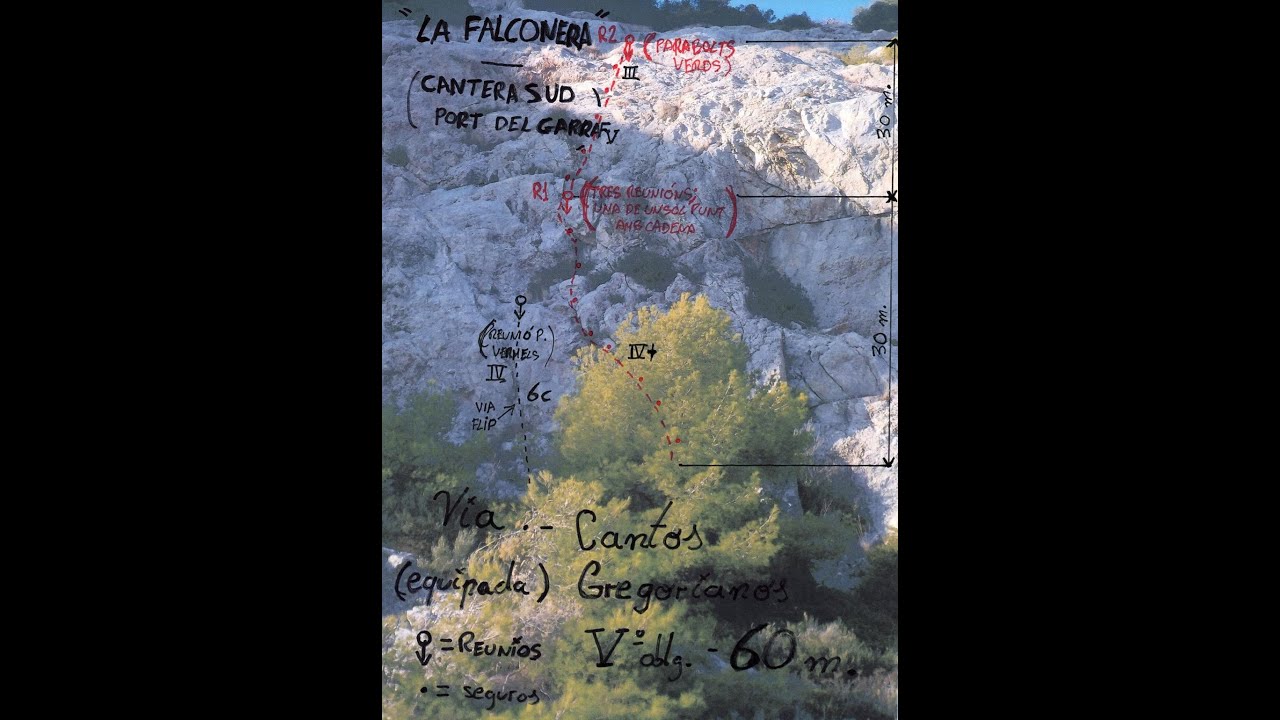 "LA FALCONERA"
(CANTERA SUD)
PORT DEL GARRAF
R2
(PARABOLTS
VERDS)
III
V
30 m.
R1
(TRES REUNIÓNS;
UNA DE UN SOL PUNT
AMB CADENA)
(REUNIÓ P.
VERMELLS)
IV
6c
VIA
FLIP
IV+
30 m.
Vía .- Cantos
(equipada) Gregorianos
= REUNIOS
V° oblg. - 60 m.
• = seguros